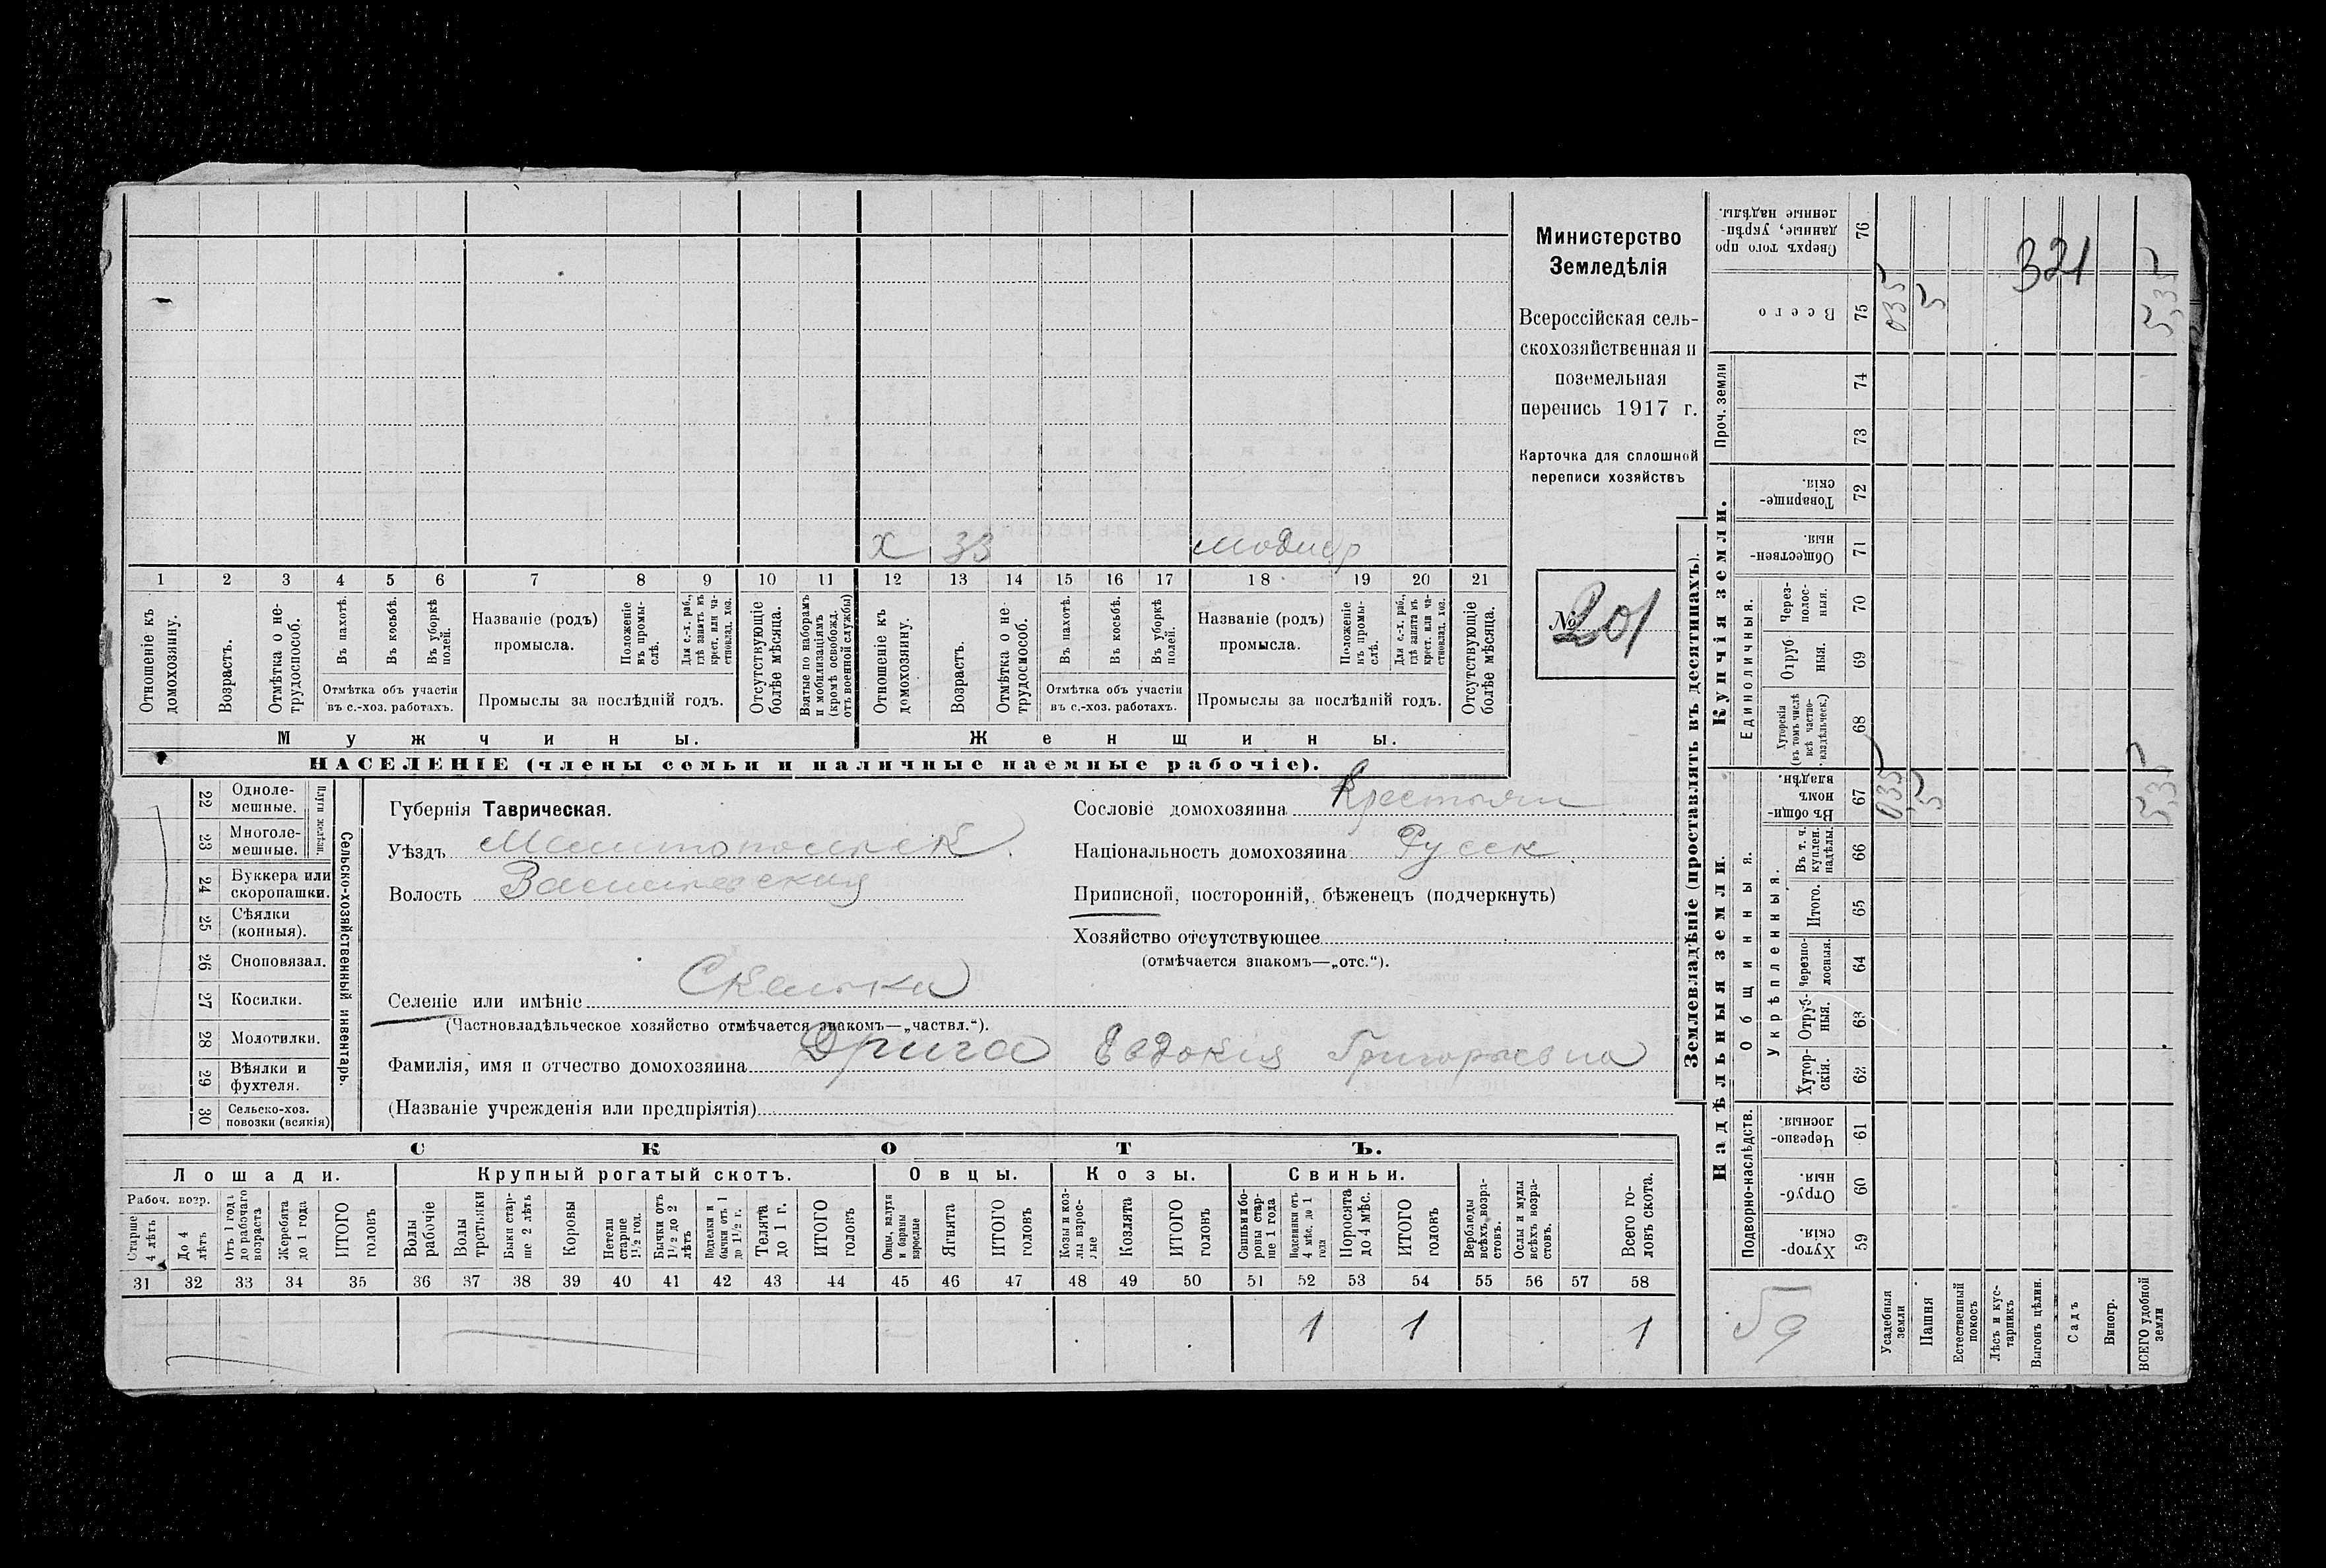 х 33 модистр
1 2 3 4 5 6 7 8 9 10 11 12 13 14 15 16 17 18 19 20 21
Отношеніе къ домохозяину.
Возрастъ.
Отмѣтка о не-
трудоспособ.
Въ пахотѣ.
Въ косьбѣ.
Въ уборкѣ
полей.
Отмѣтка объ участіи
въ с.-хоз. работахъ.
Названіе (родъ)
промысла.
Положеніе
въ промы-
слѣ.
Для с.-х. раб.,
гдѣ занятъ въ
крест. или ча-
стновлад. хоз.
Промыслы за послѣдній годъ.
Отсутствующіе
болѣе мѣсяца.
Взятые по наборамъ
и мобилизаціямъ
(кромѣ освобожд.
отъ военной службы)
Отношеніе къ
домохозяину.
Возрастъ.
Отмѣтка о не-
трудоспособ.
Въ пахотѣ.
Въ косьбѣ.
Въ уборкѣ
полей.
Отмѣтка объ участіи
въ с.-хоз. работахъ.
Названіе (родъ)
промысла.
Положеніе
въ промы-
слѣ.
Для с.-х. раб.,
гдѣ занята въ
крест. или ча-
стновлад. хоз.
Промыслы за послѣдній годъ.
Отсутствующіе
болѣе мѣсяца.
Мужчины.
Женщины.
НАСЕЛЕНІЕ (члены семьи и наличные наемные рабочіе).
Министерство
Земледѣлія
Всероссійская сель-
скохозяйственная и
поземельная
перепись 1917 г.
Карточка для сплошной
переписи хозяйствъ
№ 201
22 Одноле-
мешные.
23 Многоле-
мешные.
Плуги желѣзн.
24 Буккера или
скоропашки.
25 Сѣялки
(конныя).
26 Сноповязал.
27 Косилки.
28 Молотилки.
29 Вѣялки и
фухтеля.
30 Сельско-хоз.
повозки (всякія)
Сельско-хозяйственный инвентарь.
Губернія Таврическая.
Уѣздъ Мелитопольск.
Волость Васильевская
Селеніе или имѣніе Скельки
(Частновладѣльческое хозяйство отмѣчается знакомъ—„частвл.“).
Фамилія, имя и отчество домохозяина Дрига Евдокия Григорьевна
(Названіе учрежденія или предпріятія)
Сословіе домохозяина Крестьян
Національность домохозяина Русск.
Приписной, посторонній, бѣженецъ (подчеркнуть)
Хозяйство отсутствующее
(отмѣчается знакомъ—„отс.“).
СКОТЪ.
Лошади.
Крупный рогатый скотъ.
Овцы.
Козы.
Свиньи.
Рабоч. возр.
Старше
4 лѣтъ
До 4
лѣтъ
Отъ 1 года
до рабочаго
возраста
Жеребята
до 1 года
ИТОГО
головъ
Волы
рабочіе
Волы
третьяки
Быки стар-
ше 2 лѣтъ
Коровы
Нетели
старше
1½ год.
Бычки отъ
1½ до 2
лѣтъ
Подтелки и
бычки отъ 1
до 1½ г.
Телята
до 1 г.
ИТОГО
головъ
Овцы, валухи
и бараны
взрослые
Ягнята
ИТОГО
головъ
Козы и коз-
лы взрос-
лые
Козлята
ИТОГО
головъ
Свиньи и бо-
ровы стар-
ше 1 года
Подсвинки отъ
4 мѣс. до 1
года
Поросята
до 4 мѣс.
ИТОГО
головъ
Верблюды
всѣхъ возра-
стовъ.
Ослы и мулы
всѣхъ возра-
стовъ.
Всего го-
ловъ скота.
31 32 33 34 35 36 37 38 39 40 41 42 43 44 45 46 47 48 49 50 51 52 53 54 55 56 57 58
1 1 1
Землевладѣніе (проставлять въ десятинахъ).
Купчія земли.
Надѣльныя земли.
Сверхъ того про
данные, укрѣп-
ленные надѣлы.
76
321
Всего
75 035 5 5,35
Проч. земли
74
73
Товарище-
скія.
72
Обществен-
ныя.
71
Единоличныя.
Через-
полос-
ныя.
70
Отруб-
ныя.
69
Хуторскія
(въ томъ числѣ
всѣ частно-
владѣльческ.)
68
Общинныя.
Въ общи-
номъ
владѣн.
67 035 5 5,35
Укрѣпленныя.
Въ т. ч.
куплен.
надѣлы.
66
Итого.
65
Черезпо-
лосныя.
64
Отруб-
ныя.
63
Хутор-
скія.
62
Подворно-наслѣдств.
Черезпо-
лосныя.
61
Отруб-
ныя.
60
Хутор-
скія.
59
59
Усадебныя
земли
Пашня
Естественный
покосъ
Лѣсъ и кус-
тарникъ
Выгонъ цѣлин.
Садъ
Виногр.
ВСЕГО удобной
земли